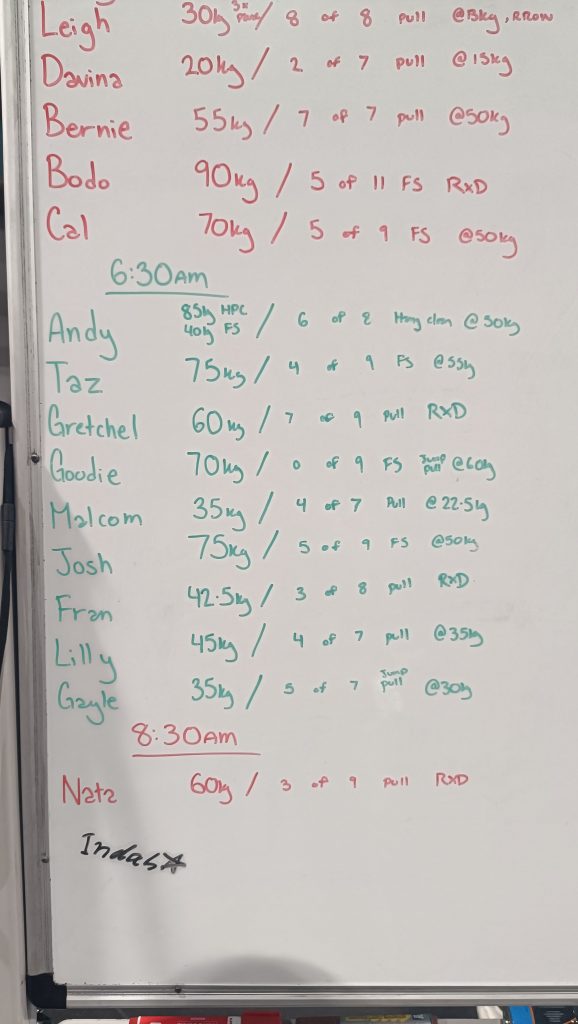 Leigh 30kg / 8 of 8 pull @13kg, RROW
Davina 20kg / 2 of 7 pull @15kg
Bernie 55kg / 7 of 7 pull @50kg
Bodo 90kg / 5 of 11 FS RxD
Cal 70kg / 5 of 9 FS @50kg
6:30AM
Andy 85kg HPC 40kg FS / 6 of 8 Hang clean @50kg
Taz 75kg / 4 of 9 FS @55kg
Gretchel 60kg / 7 of 9 pull RxD
Goodie 70kg / 0 of 9 FS Jump pull @60kg
Malcom 35kg / 4 of 7 Pull @22.5kg
Josh 75kg / 5 of 9 FS @50kg
Fran 42.5kg / 3 of 8 pull RxD
Lilly 45kg / 4 of 7 pull @35kg
Gayle 35kg / 5 of 7 Jump pull @30kg
8:30AM
Nata 60kg / 3 of 9 pull RxD
Indah